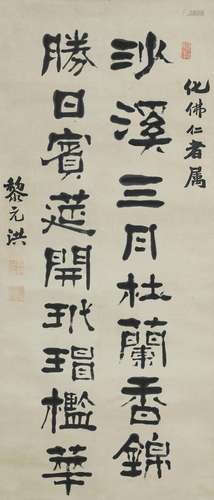 化佛仁者属
沙溪三月杜蘭香錦
勝日賓莚開玳瑁檻華
黎元洪